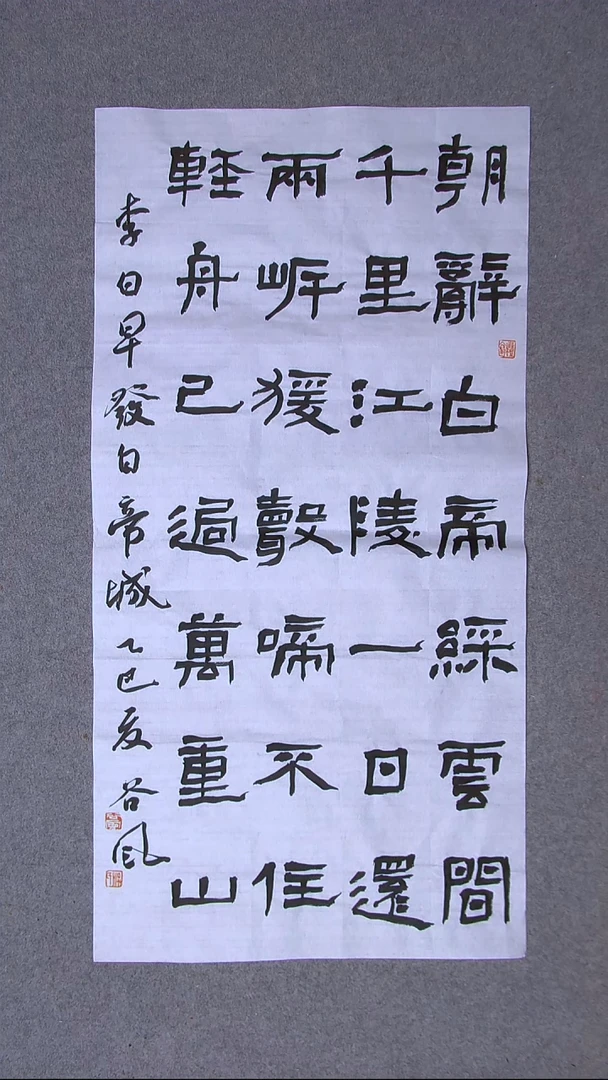 朝辭白帝綵雲間
千里江陵一日還
兩岸猨聲啼不住
輕舟已過萬重山
李白早發白帝城乙巳夏谷風